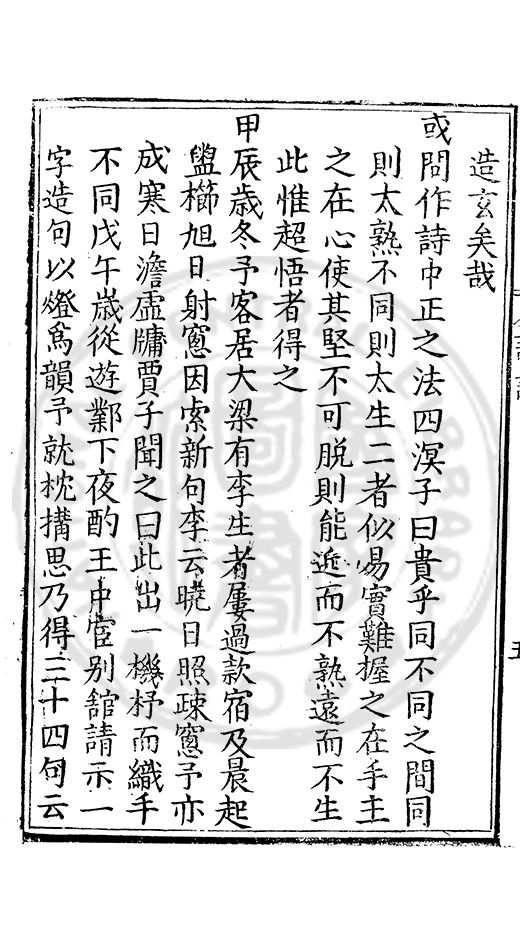 造玄矣哉
或問作詩中正之法四溟子曰貴乎同不同之間同
則太熟不同則太生二者似易實難握之在手主
之在心使其堅不可脫則能近而不熟遠而不生
此惟超悟者得之
甲辰歳冬予客居大梁有李生者屢過款宿及晨起
盥櫛旭日射窻因索新句李云曉日照疎窻予亦
成寒日澹虛牗賈子聞之曰此出一機杼而織手
不同戊午歳從遊鄴下夜酌王中宦别舘請示一
字造句以燈爲韻予就枕搆思乃得三十四句云